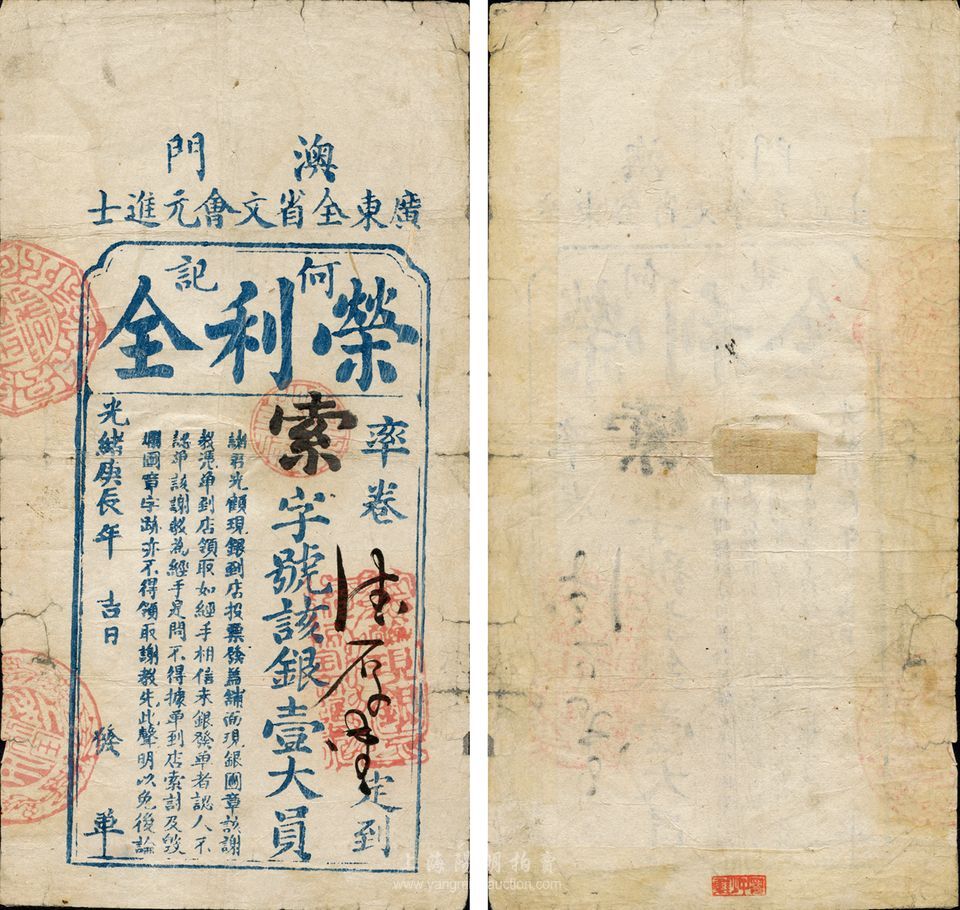 澳門
廣東全省文會元進士
何記
榮利全
率卷
定到
索字號該銀壹大員
諸君光顧現銀到店投票發蓋舖面現銀圖章該謝
教憑单到店領取如經手相信未銀發单者認人不
認单該謝教為經手是問不得據单到店索討及毀
圖章字跡亦不得領取謝教先此聲明以免後論
光緒庚辰年 吉日 發单
上海陽明拍賣
www.yangmingauction.com